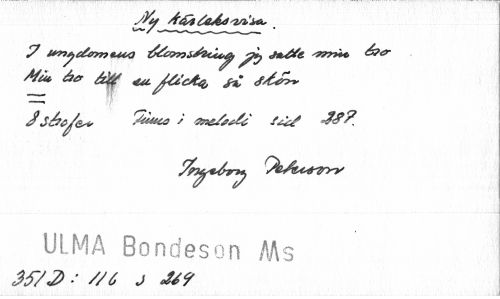 Ny kärleksvisa.
I ungdomens blomstring jag satte min tro
Min tro till en flicka så skön
8 strofer Finns i melodi sid 287.
Ingeborg Peterson
ULMA Bondeson Ms
351 D: 116 s 269